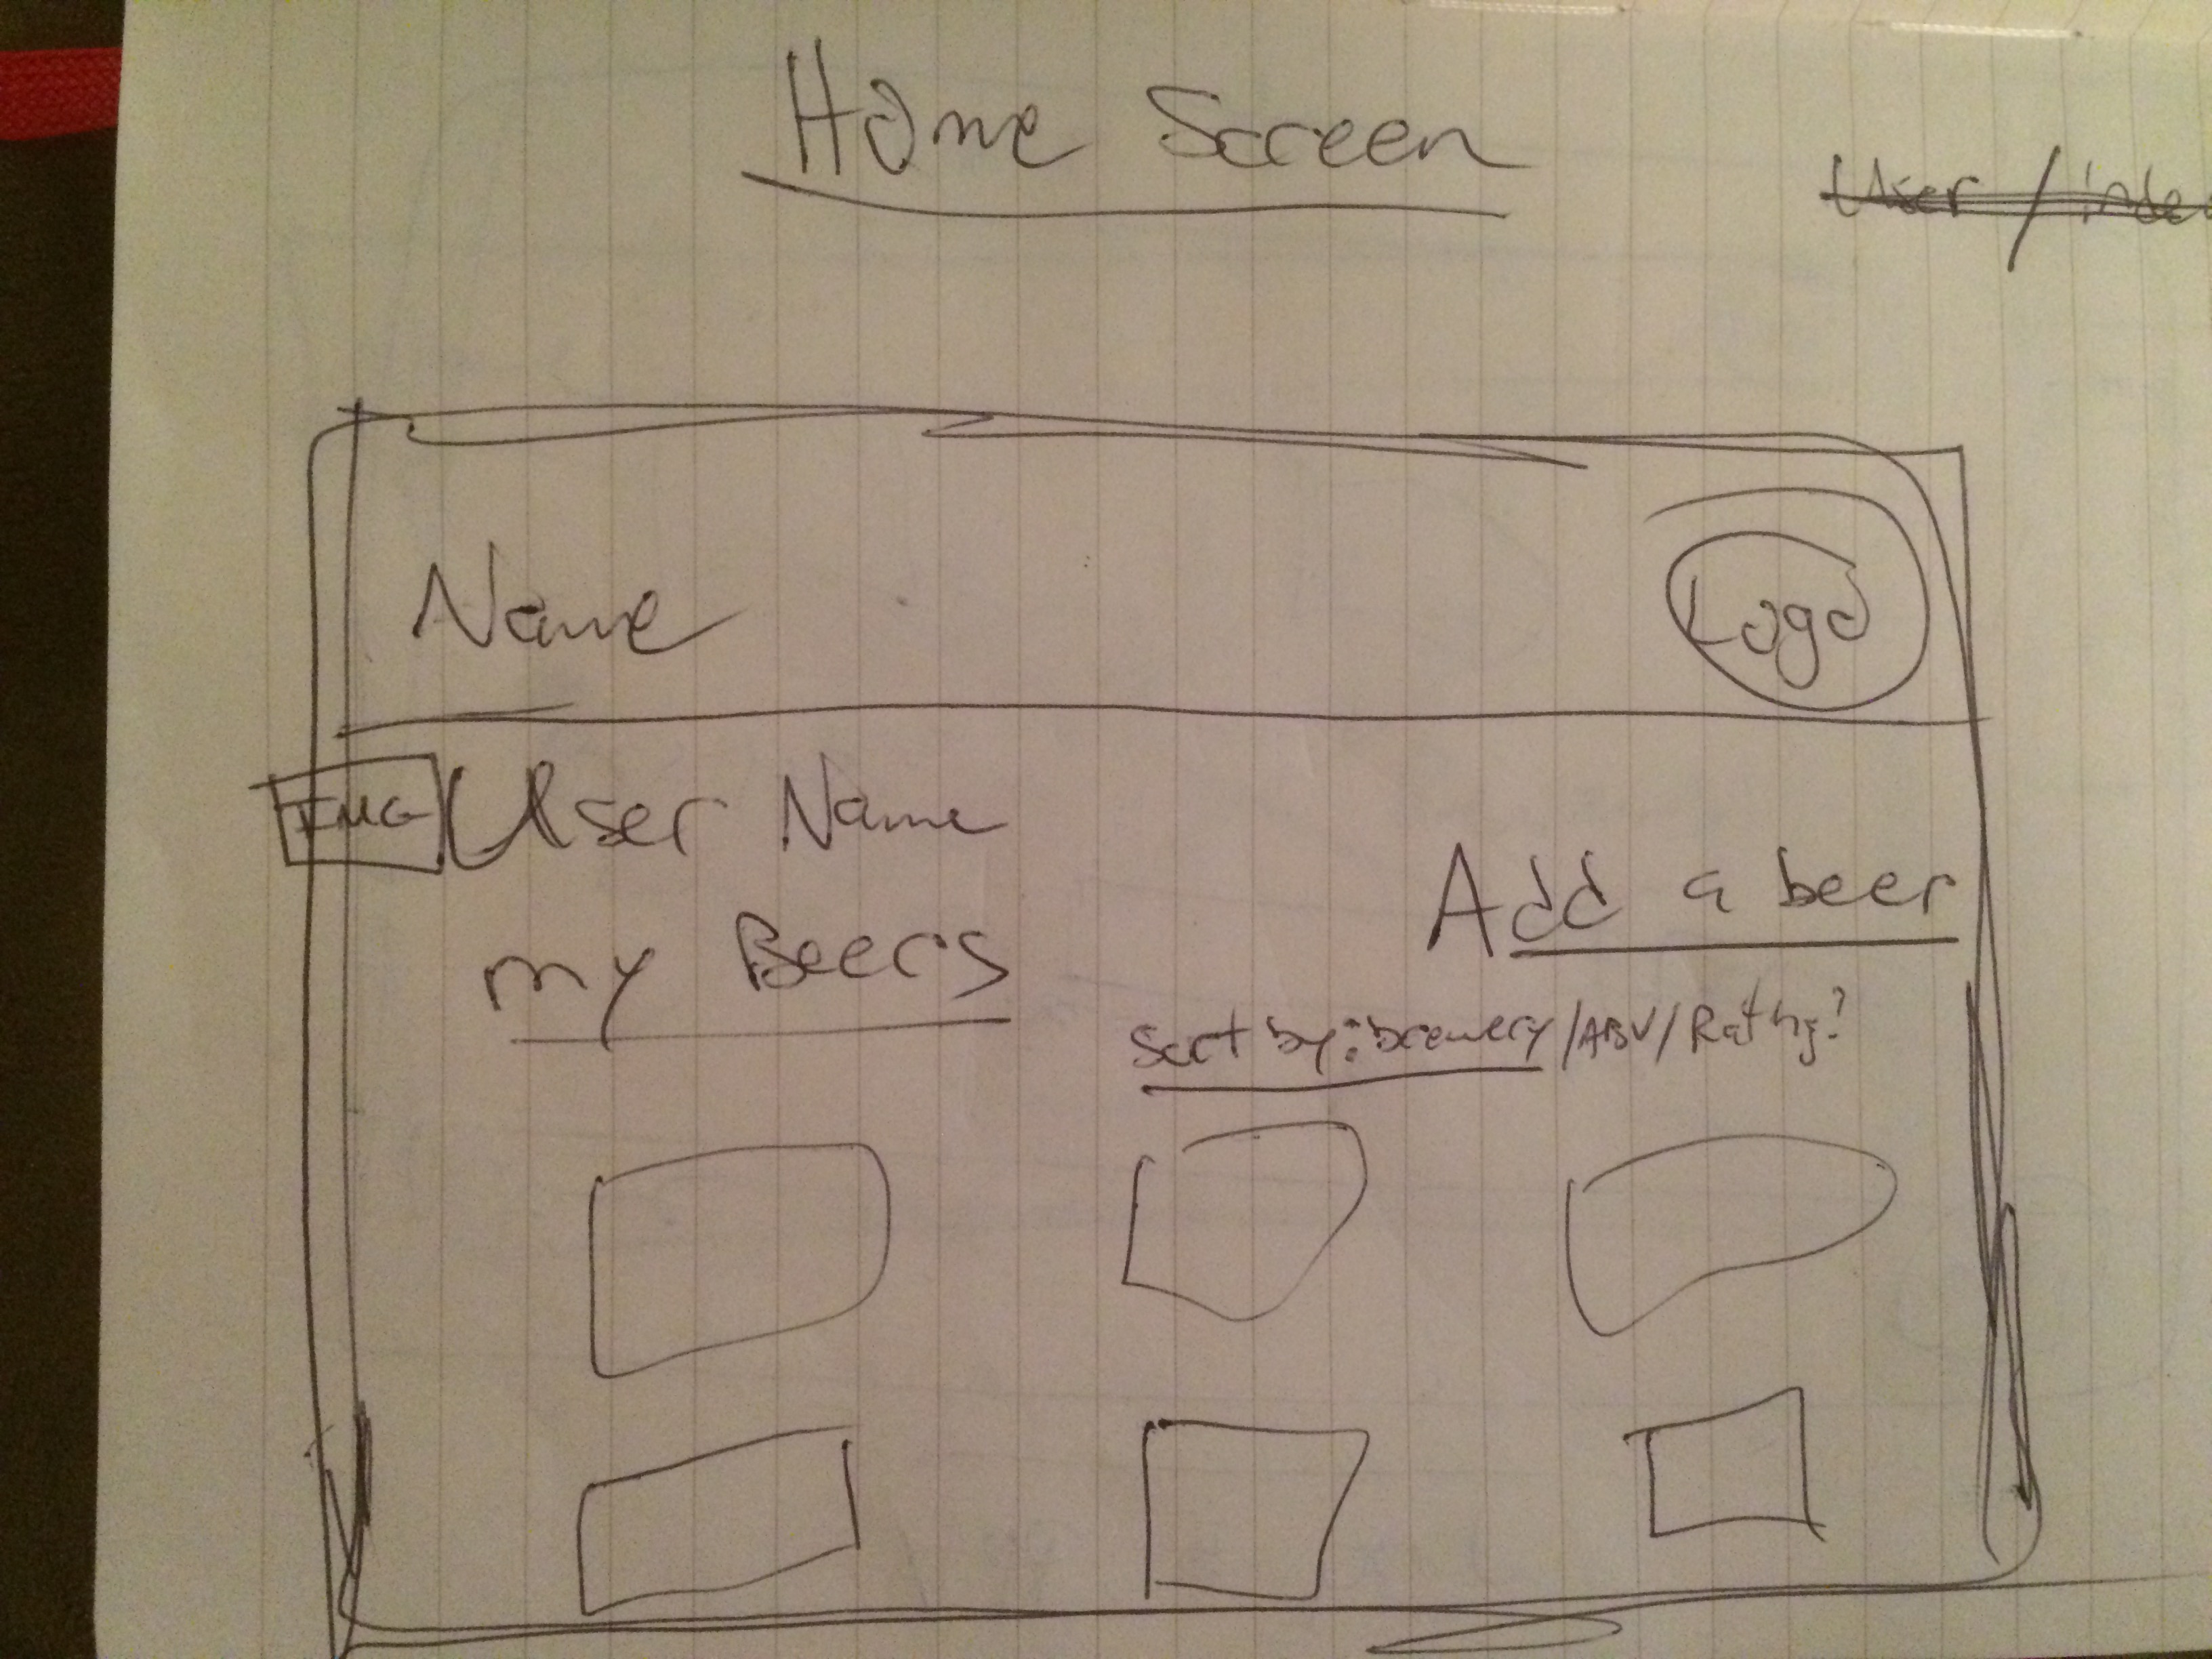 Home Screen
User / inde
Name
Logo
IMG User Name
Add a beer
my Beers
Sort by: brewery/ABV/Rating?